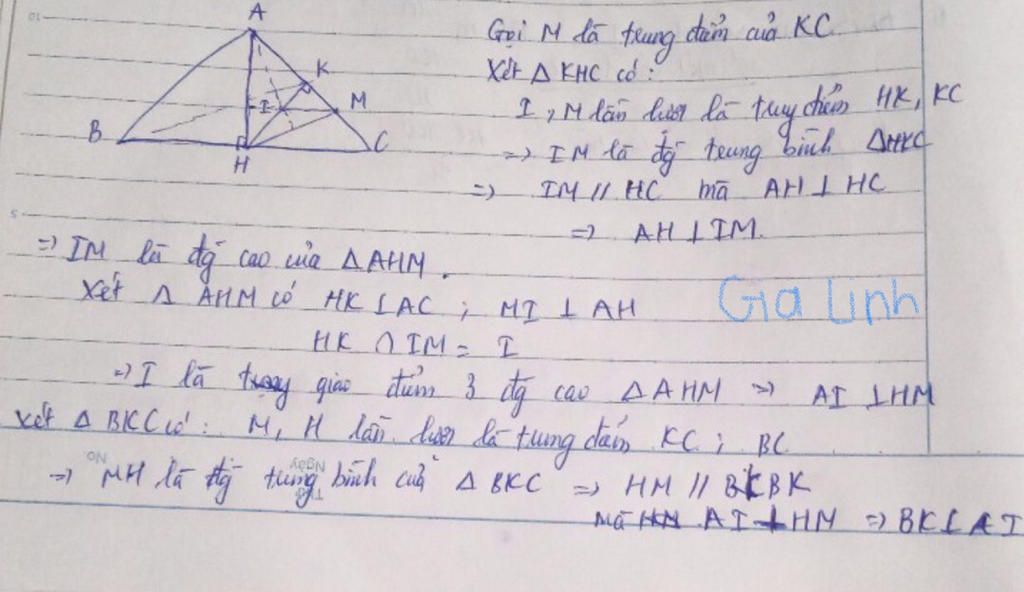 A
K
I
M
B
H
C
Gọi M là trung điểm của KC.
Xét Δ KHC có:
I, M lần lượt là trung điểm HK, KC
=> IM là đg trung bình ΔHKC
=> IM // HC mà AH ⊥ HC
=> AH ⊥ IM.
=> IM là đg cao của ΔAHM.
Xét Δ AHM có HK ⊥ AC ; MI ⊥ AH
Gia Linh
HK ∩ IM = I
=> I là giao điểm 3 đg cao ΔAHM => AI ⊥ HM
Xét Δ BKC có: M, H lần lượt là trung điểm KC ; BC
=> MH là đg trung bình củả Δ BKC => HM // BK
Mà AI ⊥ HM => BK ⊥ AI